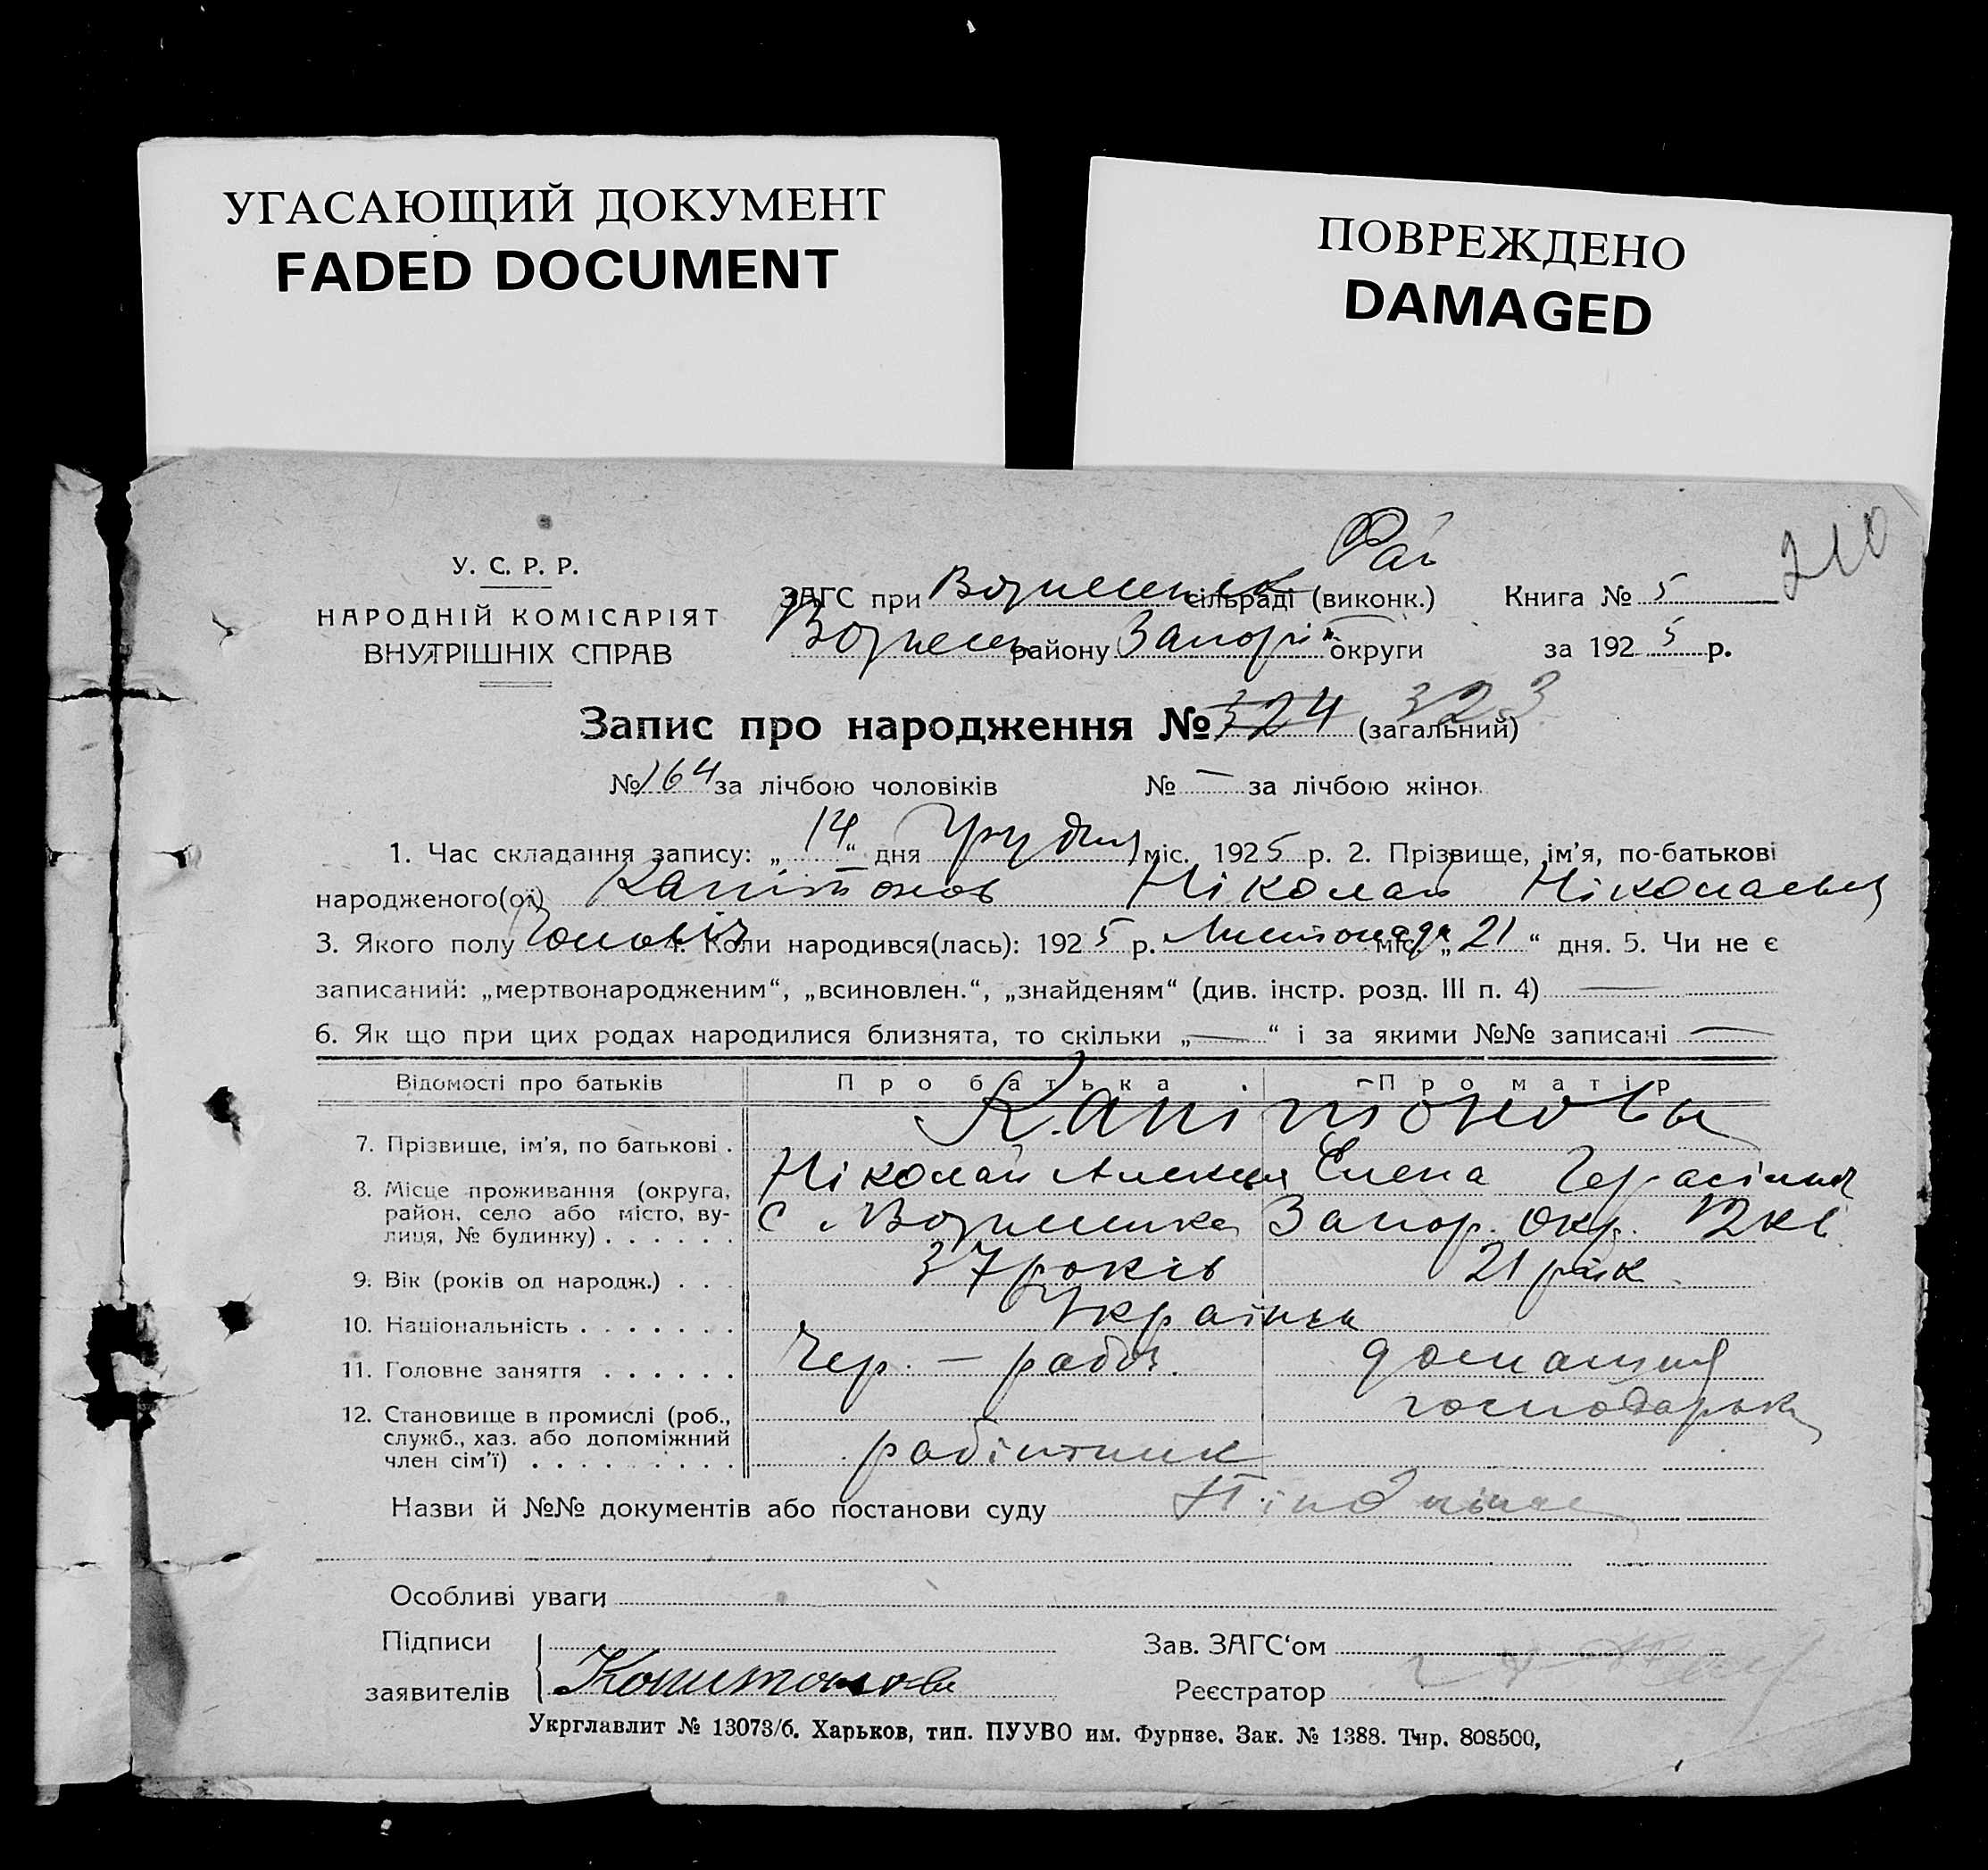 УГАСАЮЩИЙ ДОКУМЕНТ
FADED DOCUMENT
ПОВРЕЖДЕНО
DAMAGED
210
Рай
У. С. Р. Р.
НАРОДНІЙ КОМІСАРІЯТ
ВНУТРІШНІХ СПРАВ
ЗАГС при Вознесенськ сільраді (виконк.)
Вознесен району Запоріж округи
Книга № 5
за 1925 р.
Запис про народження № 324 323 (загальний)
№ 164 за лічбою чоловіків № — за лічбою жінок
1. Час складання запису: „14“ дня Грудня міс. 1925 р. 2. Прізвище, ім’я, по-батькові
народженого(ої) Капітонов Ніколай Ніколаевич
3. Якого полу Чоловіч 4. Коли народився(лась): 1925 р. Листопада міс. „21“ дня. 5. Чи не є
записаний: „мертвонародженим“, „всиновлен.“, „знайденям“ (див. інстр. розд. III п. 4) —
6. Як що при цих родах народилися близнята, то скільки „—“ і за якими №№ записані —
Відомості про батьків Про батька Про матір
Капітонови
7. Прізвище, ім’я, по батькові .
Ніколай Алексія Елена Герасімов
8. Місце проживання (округа,
район, село або місто, ву-
лиця, № будинку) . . . . . .
с. Вознесенка Запор. окр. 12 кв
9. Вік (років од народж.) . . . 37 років 21 рік
10. Національність . . . . . . . Українці
11. Головне заняття . . . . . . Чер. — рабоч. домашня
господарка
12. Становище в промислі (роб.,
служб., хаз. або допоміжний
член сім’ї) . . . . . . . . . робітник
Назви й №№ документів або постанови суду
Особливі уваги
Підписи
заявителів Копитонова
Зав. ЗАГС‘ом
Реєстратор
Укрглавлит № 13073/б. Харьков, тип. ПУУВО им. Фурнзе. Зак. № 1388. Тир. 808500,